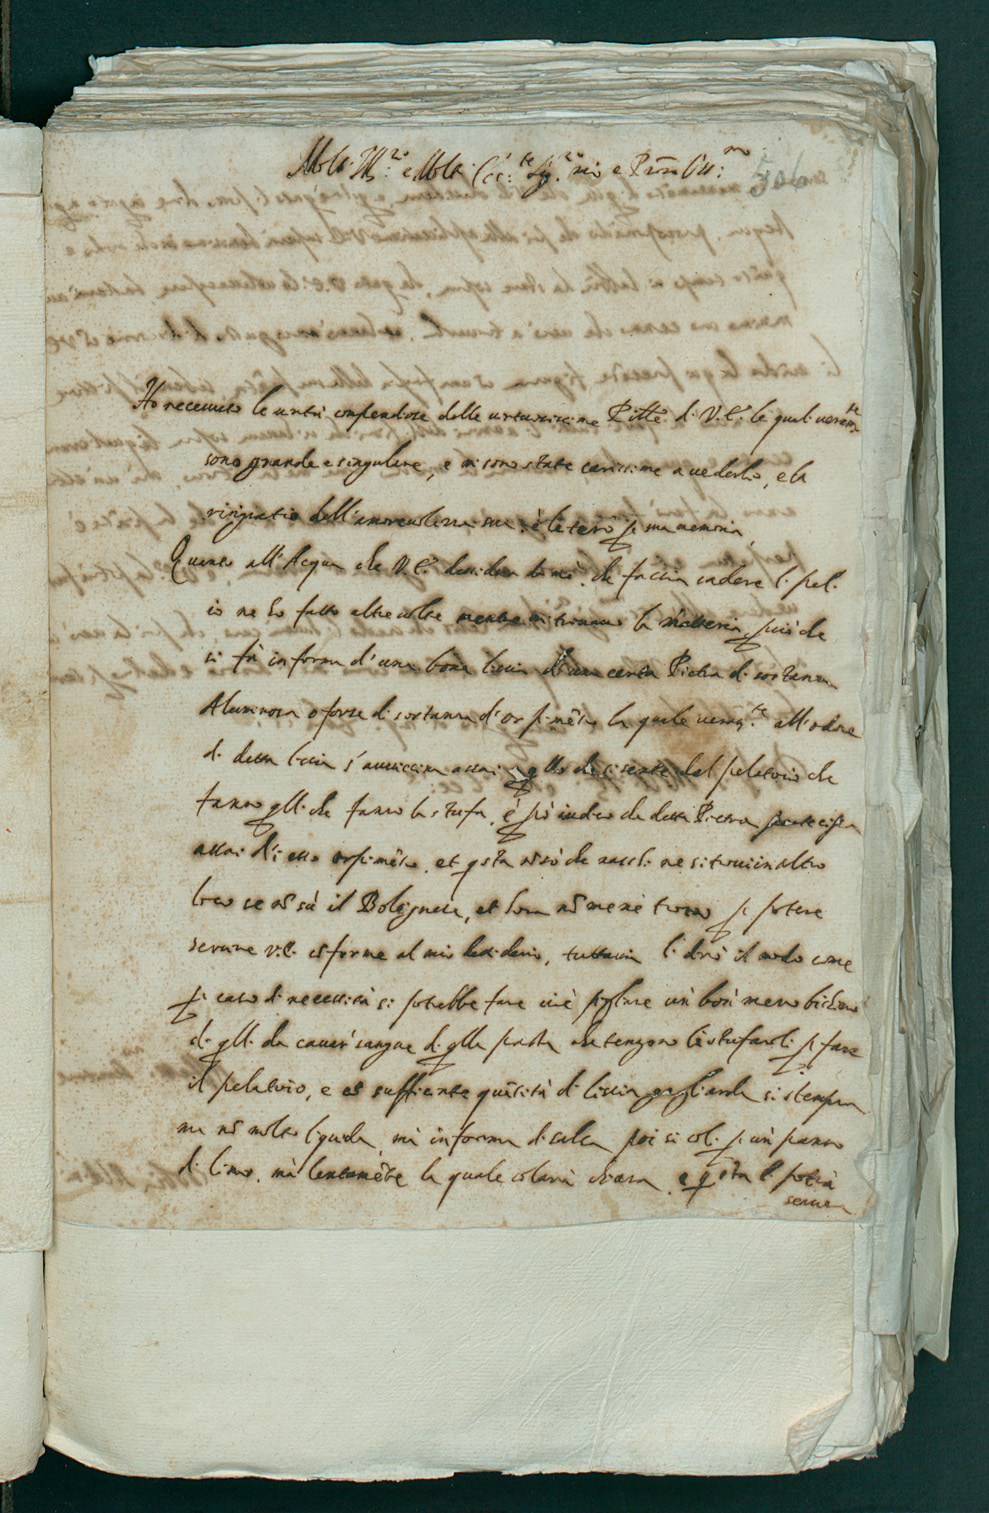 506
Molt. Ill.re e Molt. Ecc.te Sig.re mio e Prōn Oss.mo
Ho receuuto le untri compendose delle uirtuosissime Pitte di V.E. le quali ueram.te
sono grande e singulare, e mi sono state carissime a uederle, e la
ringratio dell'amoreuolezza sua e le terrò p sua memoria.
Quanto all'Acqua che V.E. desidera da me, che faccia cadere li pel.
io ne ho fatto altre uolte mentre mi trouauo la materia, poiche
si fa in forma d'una bona liscia d'una certa Pietra di sostanza
Aluminosa o forse di sostanza d'orpimēto la quale ueram.te all'odore
di detta liscia s'auuicina assai a qllo che si sente del pelatoio che
fanno qlli che fanno la stufa, e pò iudico che detta Pietra partecipa
assai di esso orpimēto. et qsta nō sò che nasch. ne si troui in altro
loco se nō sù il Bolognese, et hora nō me ne trouo p potere
seruire V.E. cōforme al mio desiderio, tuttauia li dirò il modo come
p caso di necessità si potrebbe fare cioè pigliare un bon mezzo bichiero
di qlli da cauar sangue di qlla pasta che tengono li stufaroli p fare
il pelatoio, e cō sufficiente quātità di liscia gagliarda si stempra
ma nō molto liquida, mà in forma di salsa poi si col. p un panno
di lino, mà lentamēte la quale colarà chiara, e qsta li potrà
seruire